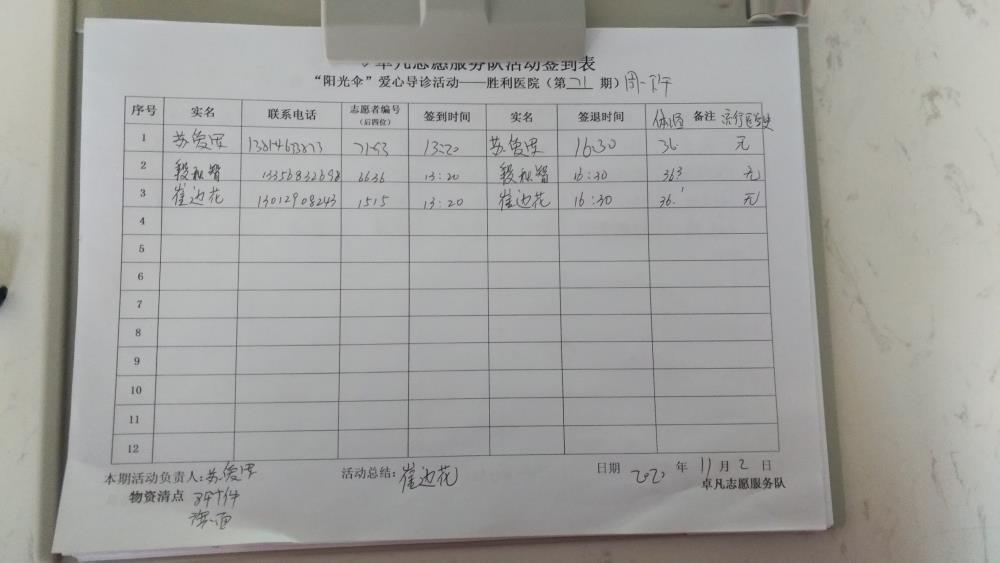 卓凡志愿服务队活动签到表
“阳光伞”爱心导诊活动——胜利医院（第 21 期）周一下午
序号 实名 联系电话 志愿者编号（后四位） 签到时间 实名 签退时间 体温 备注 流行医学史
1 苏爱 7153 13:20 苏爱 16:30 36 无
2 13356832698 6636 13:20 16:30 363 无
3 崔边花 13012908243 1515 13:20 崔边花 16:30 36.1 无
4
5
6
7
8
9
10
11
12
本期活动负责人:苏爱 活动总结: 崔边花 日期 2020 年 11 月 2 日
物资清点 卓凡志愿服务队